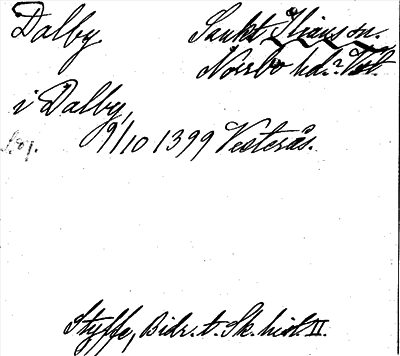 Dalby
Sankt Ilians sn.
Norrbo hd? Vstl.
i Dalby,
9/10 1399 Vesterås.
Styffe, Bidr. t. Sk. hist. II.